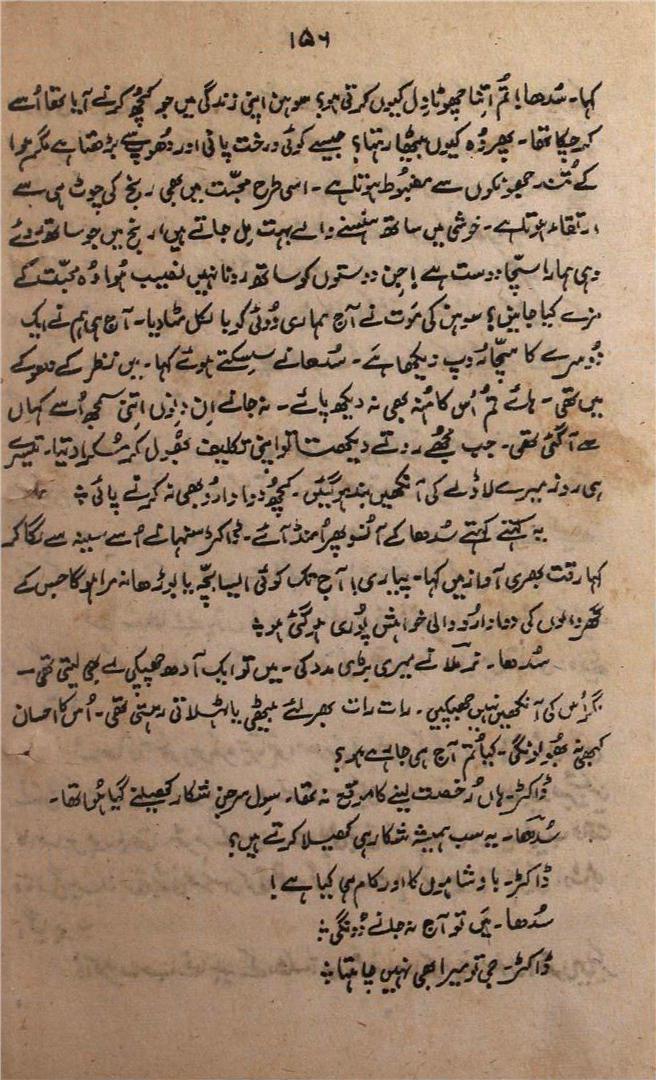 ۱۵۶
کہا۔ سُدھا! تُم اِتنا چھوٹا دِل کیوں کرتی ہو؟ سوہن اپنی زندگی میں جو کچھ کرنے آیا تھا اُسے
کر چکا تھا۔ پھر وُہ کیوں بیٹھا رہتا؟ جیسے کوئی درخت پانی اور دُھوپ سے بڑھتا ہے مگر ہوا
کے تُند جھونکوں سے مضبُوط ہوتا ہے۔ اسی طرح محبّت میں بھی رنج کی چوٹ ہی سے
ارتقاء ہوتا ہے۔ خوشی میں ساتھ ہنسنے والے بہت مِل جاتے ہیں، رنج میں جو ساتھ روئے
وہی ہمارا سچّا دوست ہے! جِن دوستوں کو ساتھ رونا نہیں نصیب ہُوا وُہ محبّت کے
مزے کیا جانیں؟ سوہن کی مَوت نے آج ہماری دُوئی کو بالکل مٹا دیا۔ آج ہی ہم نے ایک
دُوسرے کا سچّا رُوپ دیکھا ہَے۔ سُدھا نے سِسکتے ہوئے کہا۔ میں نظر کے دھوکے
میں تھی۔ ہائے تُم اُس کا مُنہ بھی نہ دیکھ پائے۔ نہ جانے اِن دِنوں اِتنی سمجھ اُسے کہاں
سے آگئی تھی۔ جب مُجھے روتے دیکھتا تو اپنی تکلیف بھُول کر مُسکرا دیتا۔ تیسرے
ہی روز میرے لاڈلے کی آنکھیں بند ہو گئیں۔ کچھ دوا دارُو بھی نہ کرنے پائی ؞
یہ کہتے کہتے سُدھا کے آنسُو پھر اُمنڈ آئے۔ ڈاکٹر سنہا نے اُسے سینہ سے لگا کر
کہا رقت بھری آواز میں کہا۔ پیاری! آج تک کوئی ایسا بچّہ یا بُوڑھا نہ مرا ہوگا جس کے
گھر والوں کی دوا دارُو والی خواہش پُوری ہو گئی ہو ؞
سُدھا۔ نرملا نے میری بڑی مدد کی۔ میں تو ایک آدھ جھپکی لے بھی لیتی تھی۔
مگر اُس کی آنکھیں نہیں جھپکیں۔ رات رات بھر لئے بیٹھی یا ٹہلاتی رہتی تھی۔ اُس کا احسان
کبھی نہ بھُولونگی۔ کیا تُم آج ہی جا رہے ہو؟
ڈاکٹر۔ ہاں رُخصت لینے کا موقع نہ تھا۔ سِول سرجن شکار کھیلنے گیا ہُوا تھا۔
سُدھا۔ یہ سب ہمیشہ شکار ہی کھیلا کرتے ہیں؟
ڈاکٹر۔ بادشاہوں کا اور کام ہی کیا ہے!
سُدھا۔ مَیں تو آج نہ جانے دُونگی ؞
ڈاکٹر۔ جی تو میرا بھی نہیں چاہتا ؞